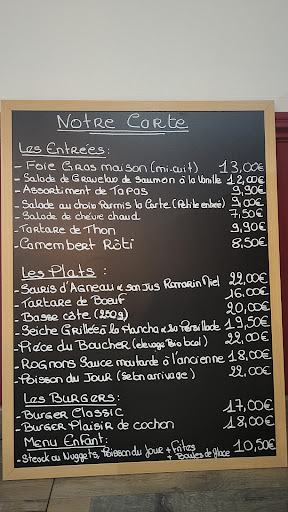 Notre Carte
Les Entrées :
- Foie Gras maison (mi.cuit) 13,00€
- Salade de Gravelax de Saumon à la Vanille 12,00€
- Assortiment de Tapas 9,90€
- Salade au choix Parmis la Carte (Petite entrée) 9,00€
- Salade de chèvre chaud 7,50€
- Tartare de Thon 9,90€
- Camembert Rôti 8,50€
Les Plats :
- Souris d'Agneau & son jus Romarin Miel 22,00€
- Tartare de Boeuf 16,00€
- Basse côte (250g) 20,00€
- Seiche Grillée à la Plancha & sa Persillade 19,50€
- Pièce du Boucher (elevage Bio local) 22,00€
- Rognons Sauce moutarde à l'ancienne 18,00€
- Poisson du Jour (Selon arrivage) 22,00€
Les Burgers :
- Burger Classic 17,00€
- Burger Plaisir de cochon 18,00€
Menu Enfant :
- Steack ou Nuggets, Poisson du Jour + Frites 10,50€
+ Boules de Glace